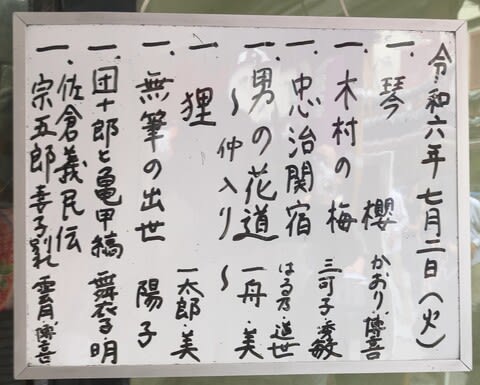 令和六年七月二日(火)
一、琴櫻 かおり・博喜
一、木村の梅 三可子・秀敏
一、忠治関宿 はる乃・道世
一、男の花道 一舟・美
〜仲入り〜
一、狸 一太郎・美
一、無筆の出世 陽子
一、团十郎と亀甲縞 舞衣子・明
一、佐倉義民伝
宗五郎妻子別れ 雲月・博喜